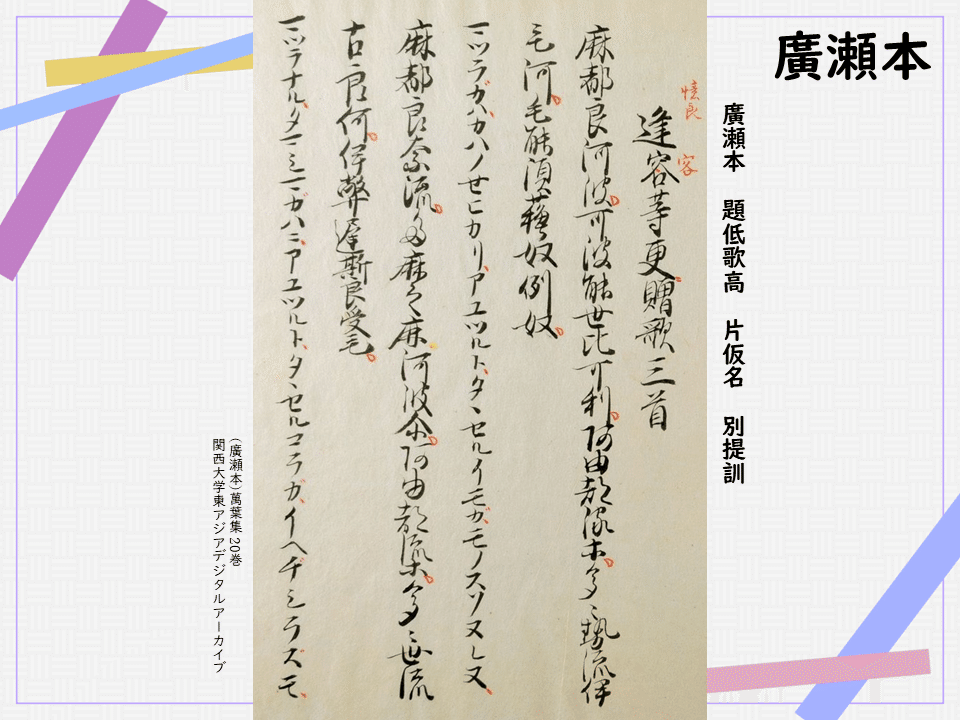 廣瀬本
廣瀬本 題低歌高 片仮名 別提訓
懐良
客
逢容等更贈歌三首
麻都良河波可波能世比可利阿由都流等多々勢流伊
毛河毛能須蘓奴例奴
マツラガハカハノセヒカリアユツルトタヽセルイモガモノスソヌレヌ
麻都良奈流多麻之麻河波尓阿由都流等多々世流
古良何伊弊遅斯良受毛
マツラナルタマシマガハニアユツルトタヽセルコラガイヘヂシラズモ
(廣瀬本)萬葉集 20巻
関西大学東アジアデジタルアーカイブ